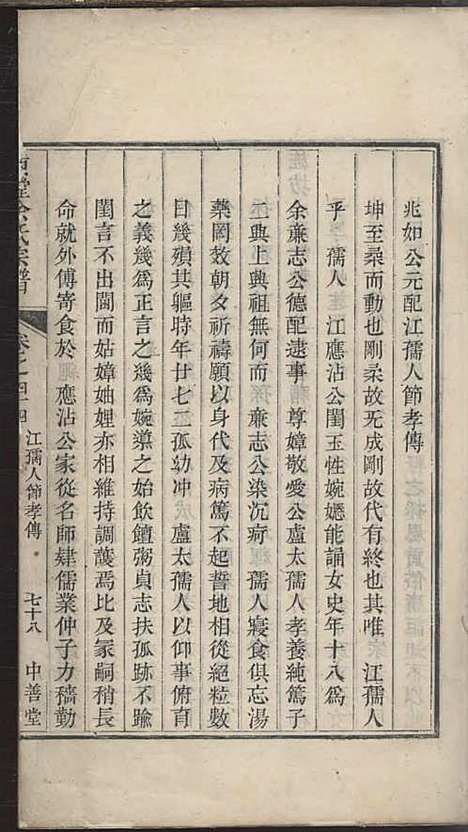 兆如公元配江孺人節孝傳
坤至柔而動也剛柔故无成剛故代有終也其唯　江孺人
乎　孺人　江應沾公閨玉性婉嫕能誦女史年十八爲
余亷志公德配逮事　尊嫜敬愛公盧太孺人孝養純篤子
二典上典祖無何而　亷志公染沉疴　孺人寢食俱忘湯
藥罔效朝夕祈禱願以身代及病篤不起誓地相從絕粒數
日幾殞其軀時年廿七二孤幼冲　盧太孺人以仰事俯育
之義幾爲正言之幾爲婉導之始飲饘粥貞志扶孤跡不踰
閨言不出閫而姑嫜妯娌亦相維持調護焉比及冢嗣稍長
命就外傅寄食於　應沾公家從名師肄儒業仲子力穡勤
堂余氏宗譜
卷之四
江孺人節孝傳
七十八
中善堂